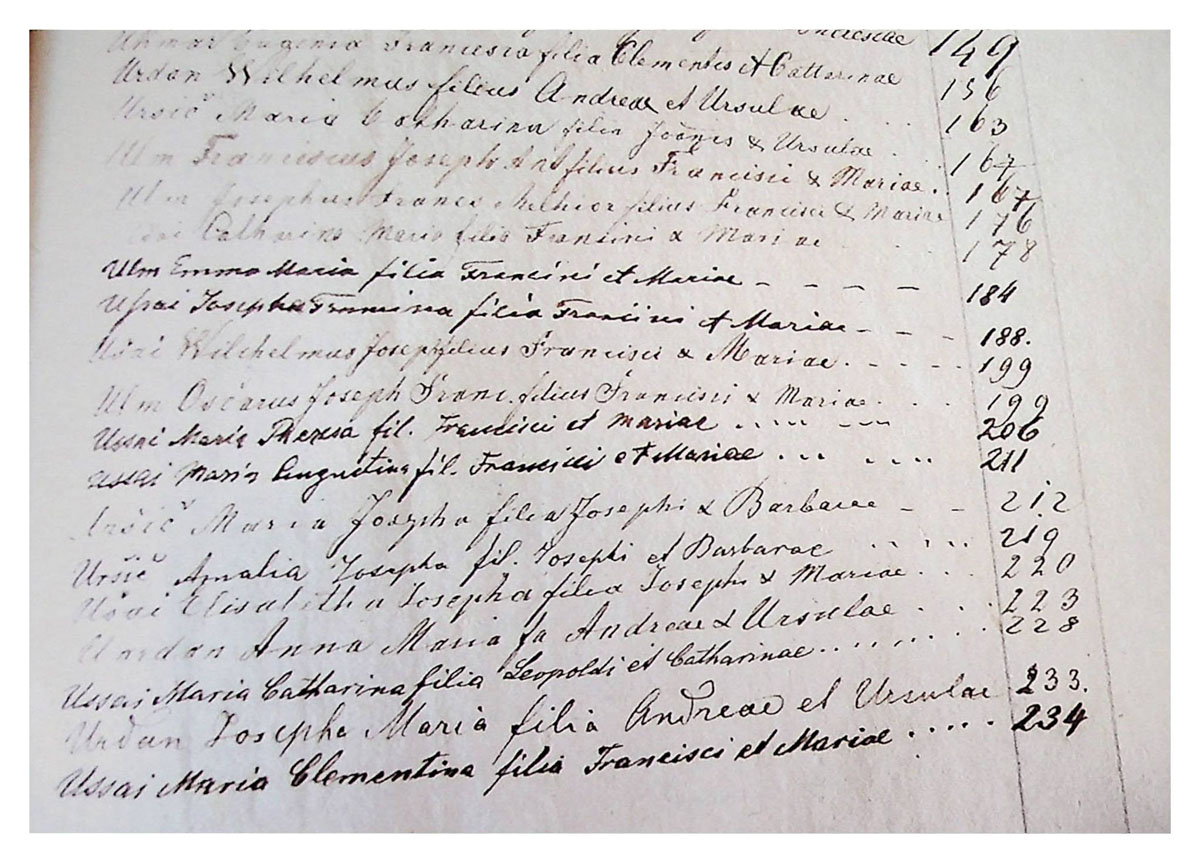 Eugenia Francisca filia Clementis et Catharinae 149
Urdan Wilhelmus filius Andreae et Ursulae . . . 156
Uršič Maria Catharina filia Joānis & Ursulae . . 163
Ulm Franciscus Joseph Ant filius Francisci & Mariae . . 167
Ulm Josephus Franc Melhior filius Francisci & Mariae 167
176
Catharina Maria filia Francisci & Mariae 178
Ulm Emma Maria filia Francisci et Mariae - - - - 184
Ussai Josepha Francisca filia Francisci et Mariae - - - 188.
Ušai Wilchelmus Joseph filius Francisci & Mariae . - - - - 199
Ulm Oscarus Joseph Franc. filius Francisci & Mariae . . . 199
Ussai Maria Theresa fil. Francisci et Mariae . . . . . - - - 206
Ussai Maria Augustina fil. Francisci et Mariae . . . . . . . 211
Uršič Maria Josepha filia Josephi & Barbarae - - 212
Uršič Amalia Josepha fil. Josephi et Barbarae . . . . . . 219
Ušai Elisabetha Josepha filia Josephi & Mariae . . . 220
Urdan Anna Maria fa Andreae & Ursulae . . . . 223
Ussai Maria Catharina filia Leopoldi et Catharinae . . . . . . . . . . 228
Urdan Josepha Maria filia Andreae et Ursulae 233.
Ussai Maria Clementina filia Francisci et Mariae . . . . . 234